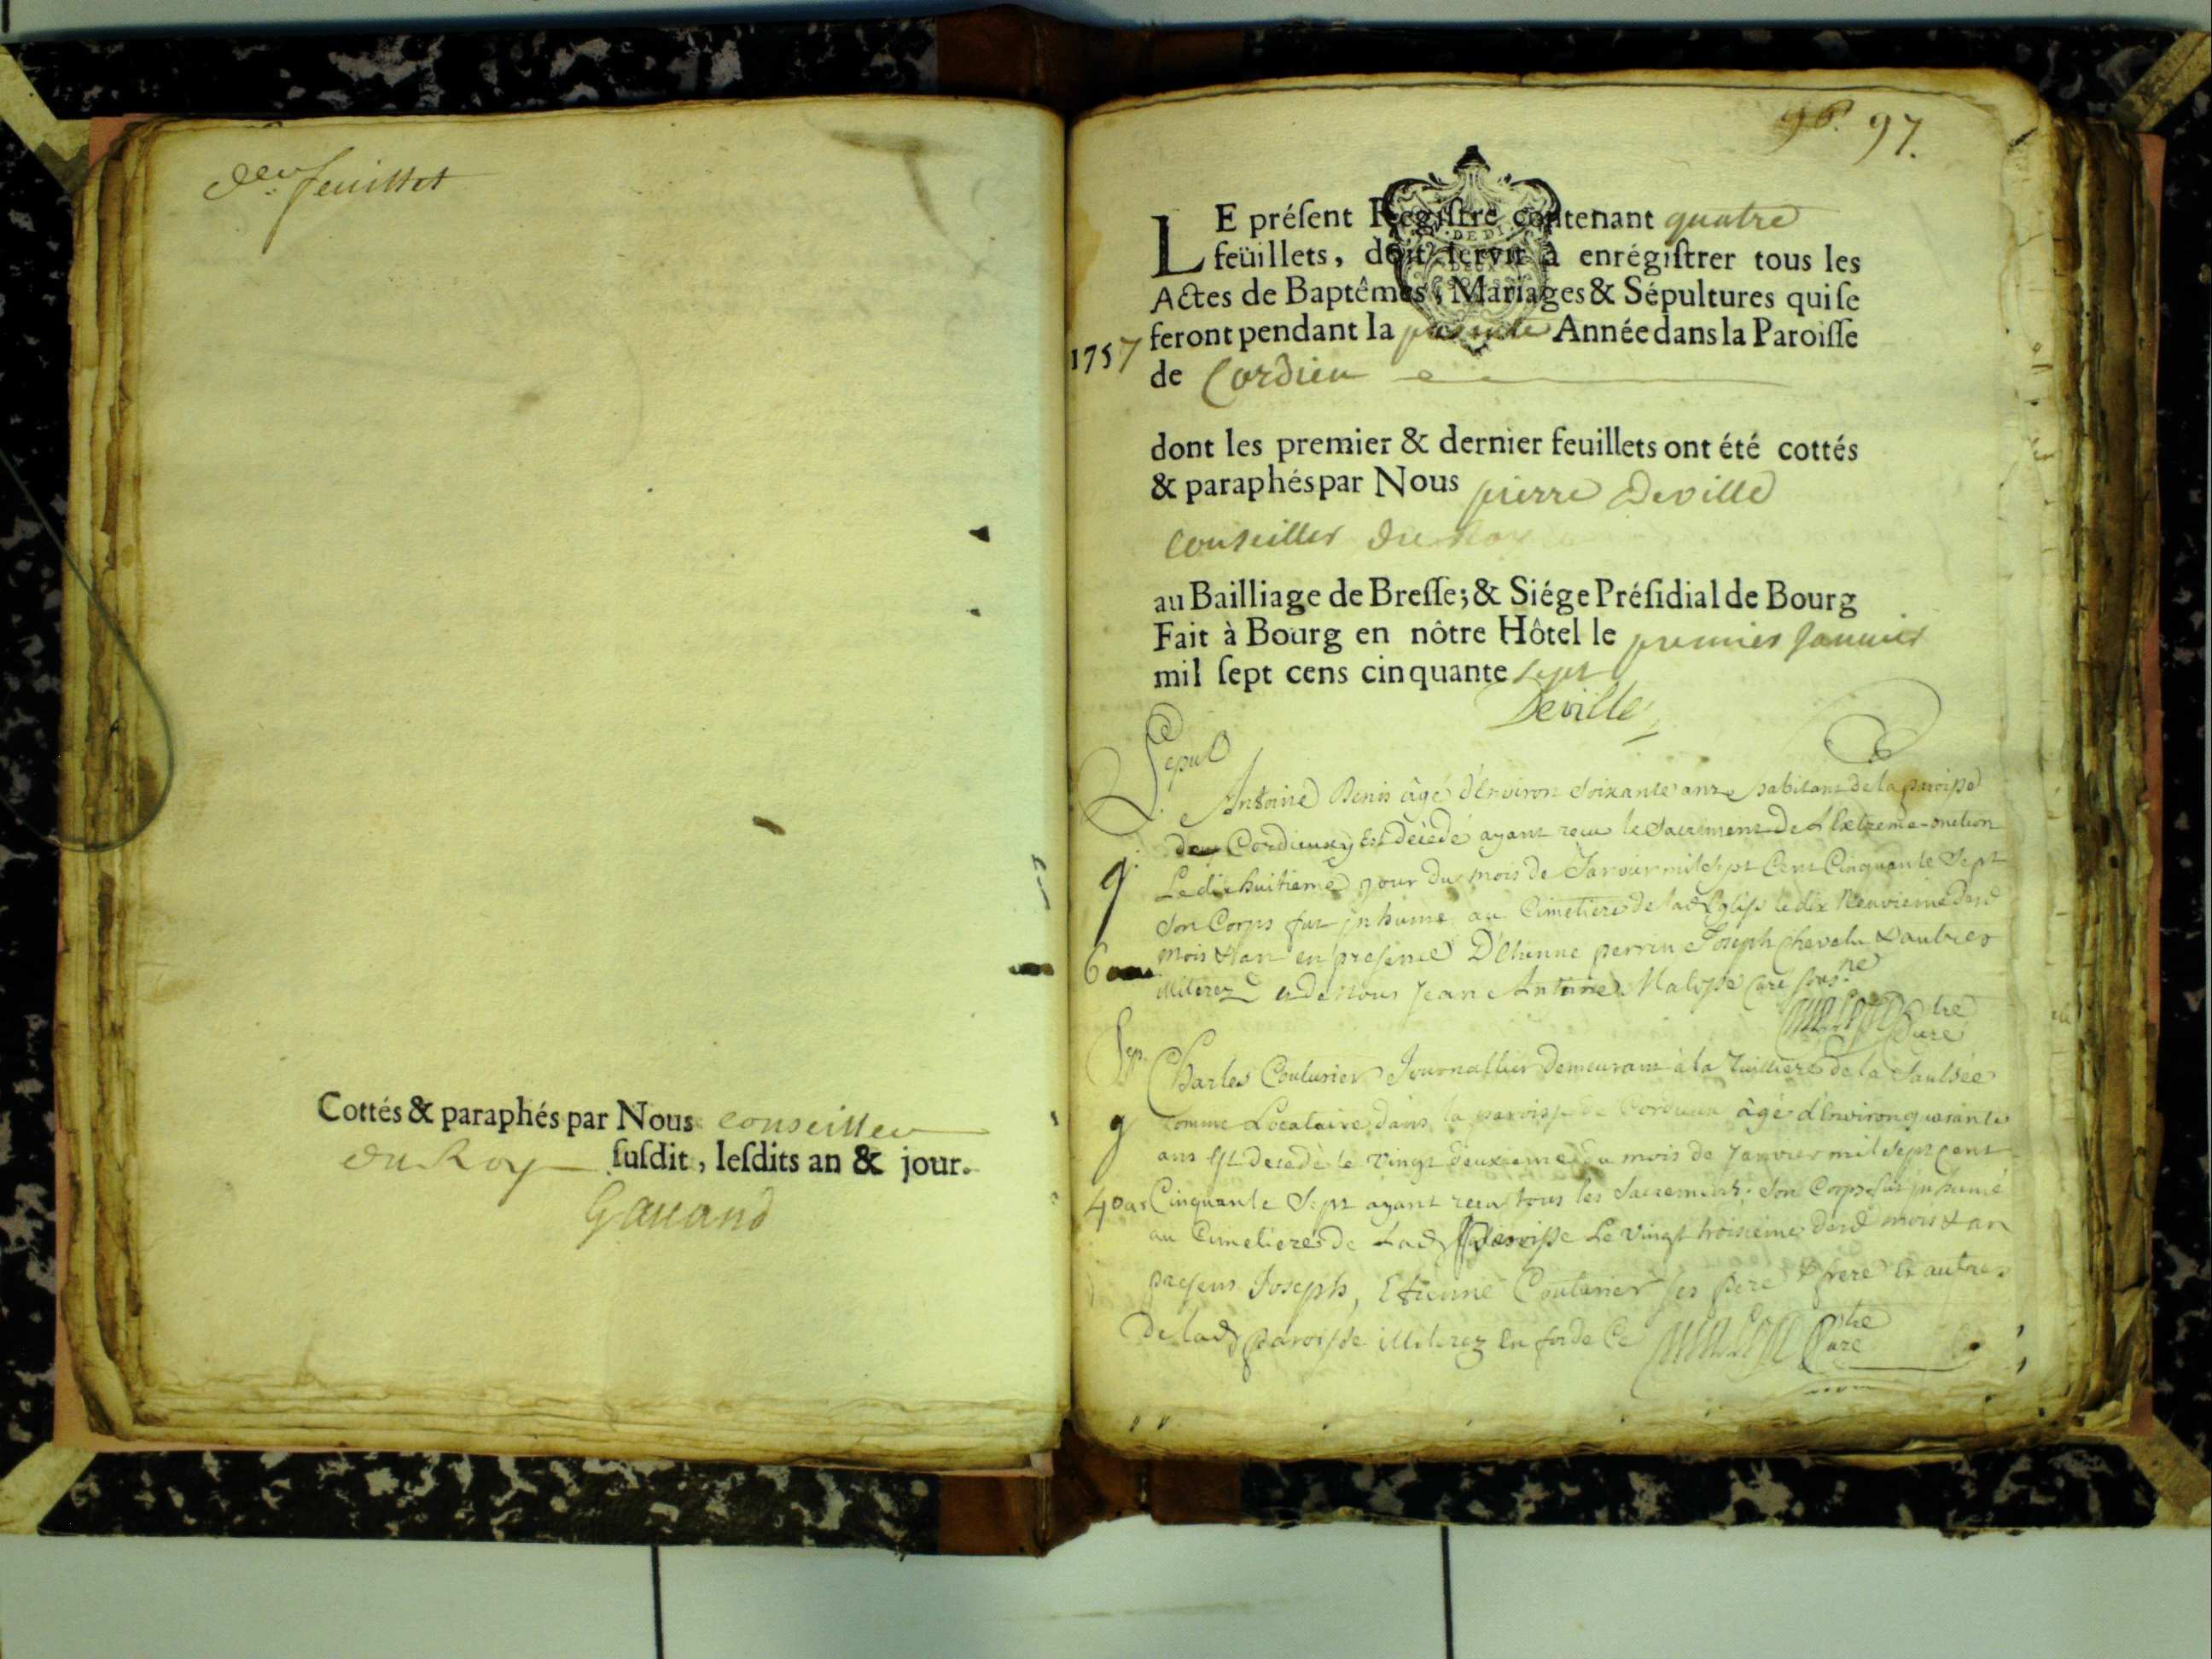 der feuillet
Cottés & paraphés par Nous conseiller
du Roy susdit, lesdits an & jour.
Gauand
96. 97.
LE présent Registre contenant quatre
feüillets, doit servir à enrégistrer tous les
Actes de Baptêmes, Mariages & Sépultures qui se
feront pendant la presente Année dans la Paroisse
1757
de Cordieu
dont les premier & dernier feuillets ont été cottés
& paraphés par Nous pierre Deville
conseiller du Roy
au Bailliage de Bresse; & Siége Présidial de Bourg
Fait à Bourg en nôtre Hôtel le premier Janvier
mil sept cens cinquante sept
Deville
Sepul
Antoine Denis âgé d'Environ soixante ans habitant de la paroisse
de Cordieux y Est décédé ayant recu le Sacrement de L'Extreme-onction
Le dix huitieme jour du mois de Janvier mil sept Cent Cinquante Sept
son Corps fut inhumé au Cimetiere de lad Eglise le dix Neuvieme dud
mois & an en presence D'Etienne perrin Joseph chevelu & autres
illiterez et de Nous Jean Antoine Curé
Curé
60
Sep.
Charles Couturier Journallier demeurant à la Tuilliere de la Saulsée
comme Locataire dans la paroisse de Cordieux âgé d'Environ quarante
ans Est decedé le vingt deuxieme du mois de Janvier mil sept cent
40 as Cinquante Sept ayant recu tous les Sacremens; son Corps fut inhumé
au Cimetiere de Lad paroisse Le vingt troisieme dud mois & an
presens Joseph, Etienne Couturier ses pere & frere Et autres
De lad paroisse illiterez En foy de Ce
Curé